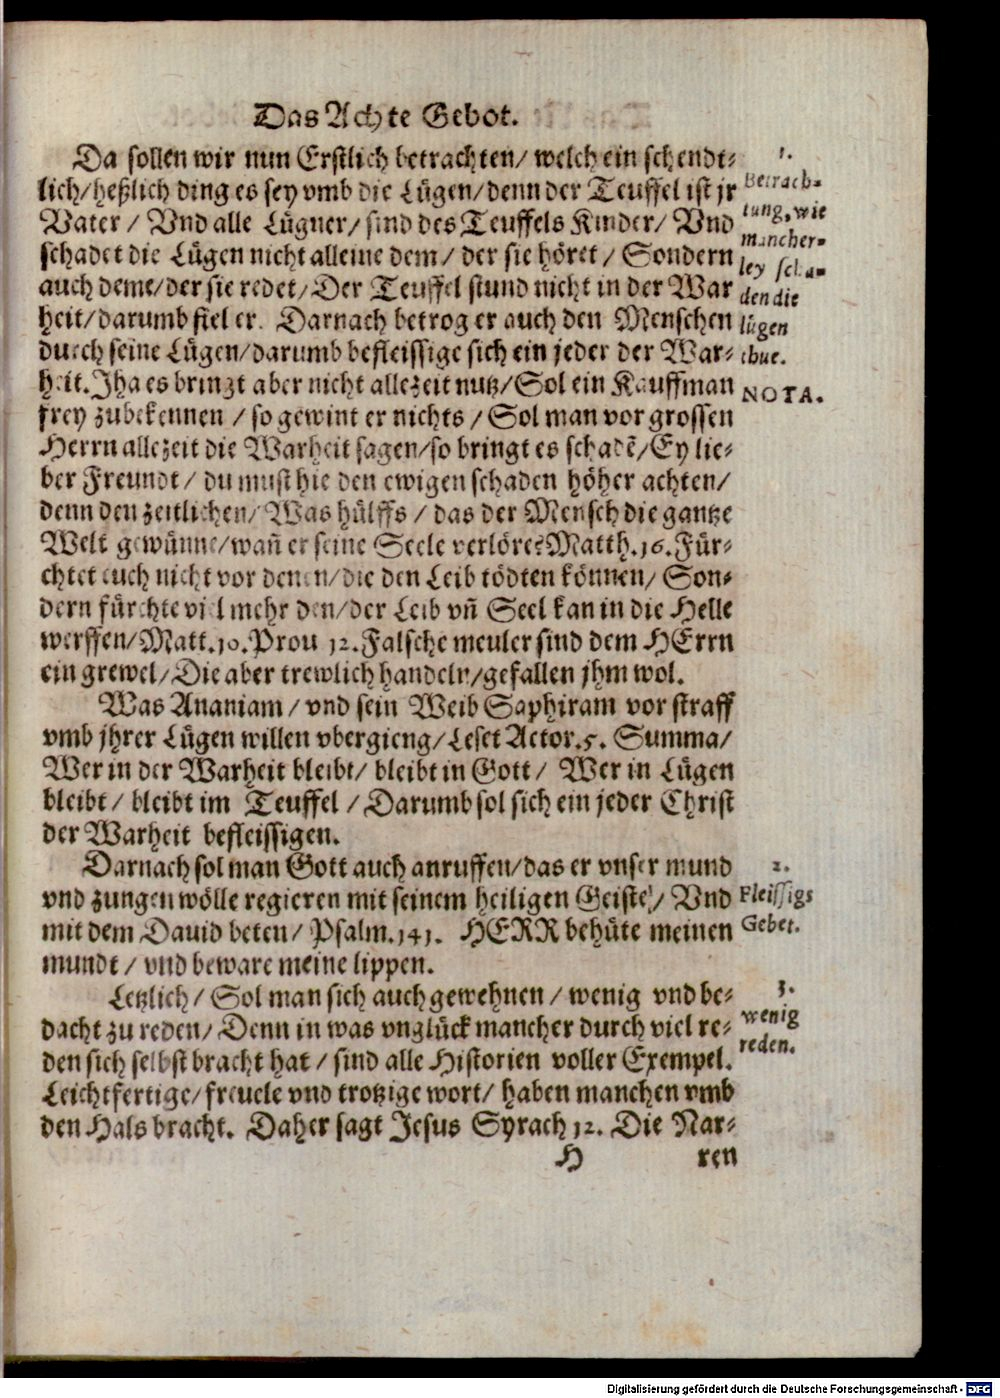 Das Achte Gebot.
Da sollen wir nun Erstlich betrachten/ welch ein schendt-
lich/heßlich ding es sey vmb die Lügen/denn der Teuffel ist jr
Vater / Vnd alle Lügner/ sind des Teuffels Kinder/ Vnd
schadet die Lügen nicht alleine dem/ der sie höret / Sondern
auch deme/der sie redet/Der Teuffel stund nicht in der War
heit/darumb fiel er. Darnach betrog er auch den Menschen
durch seine Lügen/darumb befleissige sich ein jeder der War-
heit. Jha es bringt aber nicht allezeit nutz/Sol ein Kauffman
frey zubekennen / so gewint er nichts / Sol man vor grossen
Herrn allezeit die Warheit sagen/so bringt es schadē/Ey lie-
ber Freundt / du must hie den ewigen schaden höher achten/
denn den zeitlichen/ Was hülffs / das der Mensch die gantze
Welt gewünne/wañ er seine Seele verlöre? Matth.16. Für-
chtet euch nicht vor denen/die den Leib tödten können/ Son-
dern fürchte viel mehr den/der Leib vñ Seel kan in die Helle
werffen/Matt.10. Prou 12. Falsche meuler sind dem HErrn
ein grewel/Die aber trewlich handeln/gefallen jhm wol.
Was Ananiam / vnd sein Weib Saphiram vor straff
vmb jhrer Lügen willen vbergieng/Leset Actor.5. Summa/
Wer in der Warheit bleibt/ bleibt in Gott / Wer in Lügen
bleibt / bleibt im Teuffel / Darumb sol sich ein jeder Christ
der Warheit befleissigen.
Darnach sol man Gott auch anruffen/das er vnser mund
vnd zungen wölle regieren mit seinem heiligen Geiste/ Vnd
mit dem Dauid beten/ Psalm.141. HERR behüte meinen
mundt / vnd beware meine lippen.
Letzlich/ Sol man sich auch gewehnen / wenig vnd be-
dacht zu reden/ Denn in was vnglück mancher durch viel re-
den sich selbst bracht hat / sind alle Historien voller Exempel.
Leichtfertige/freuele vnd trotzige wort/ haben manchen vmb
den Hals bracht. Daher sagt Jesus Syrach 12. Die Nar-
H ren
1.
Betrach-
tung, wie
mancher-
ley scha-
den die
lügen
thue.
NOTA.
2.
Fleissigs
Gebet.
3.
wenig
reden.
Digitalisierung gefördert durch die Deutsche Forschungsgemeinschaft - DFG